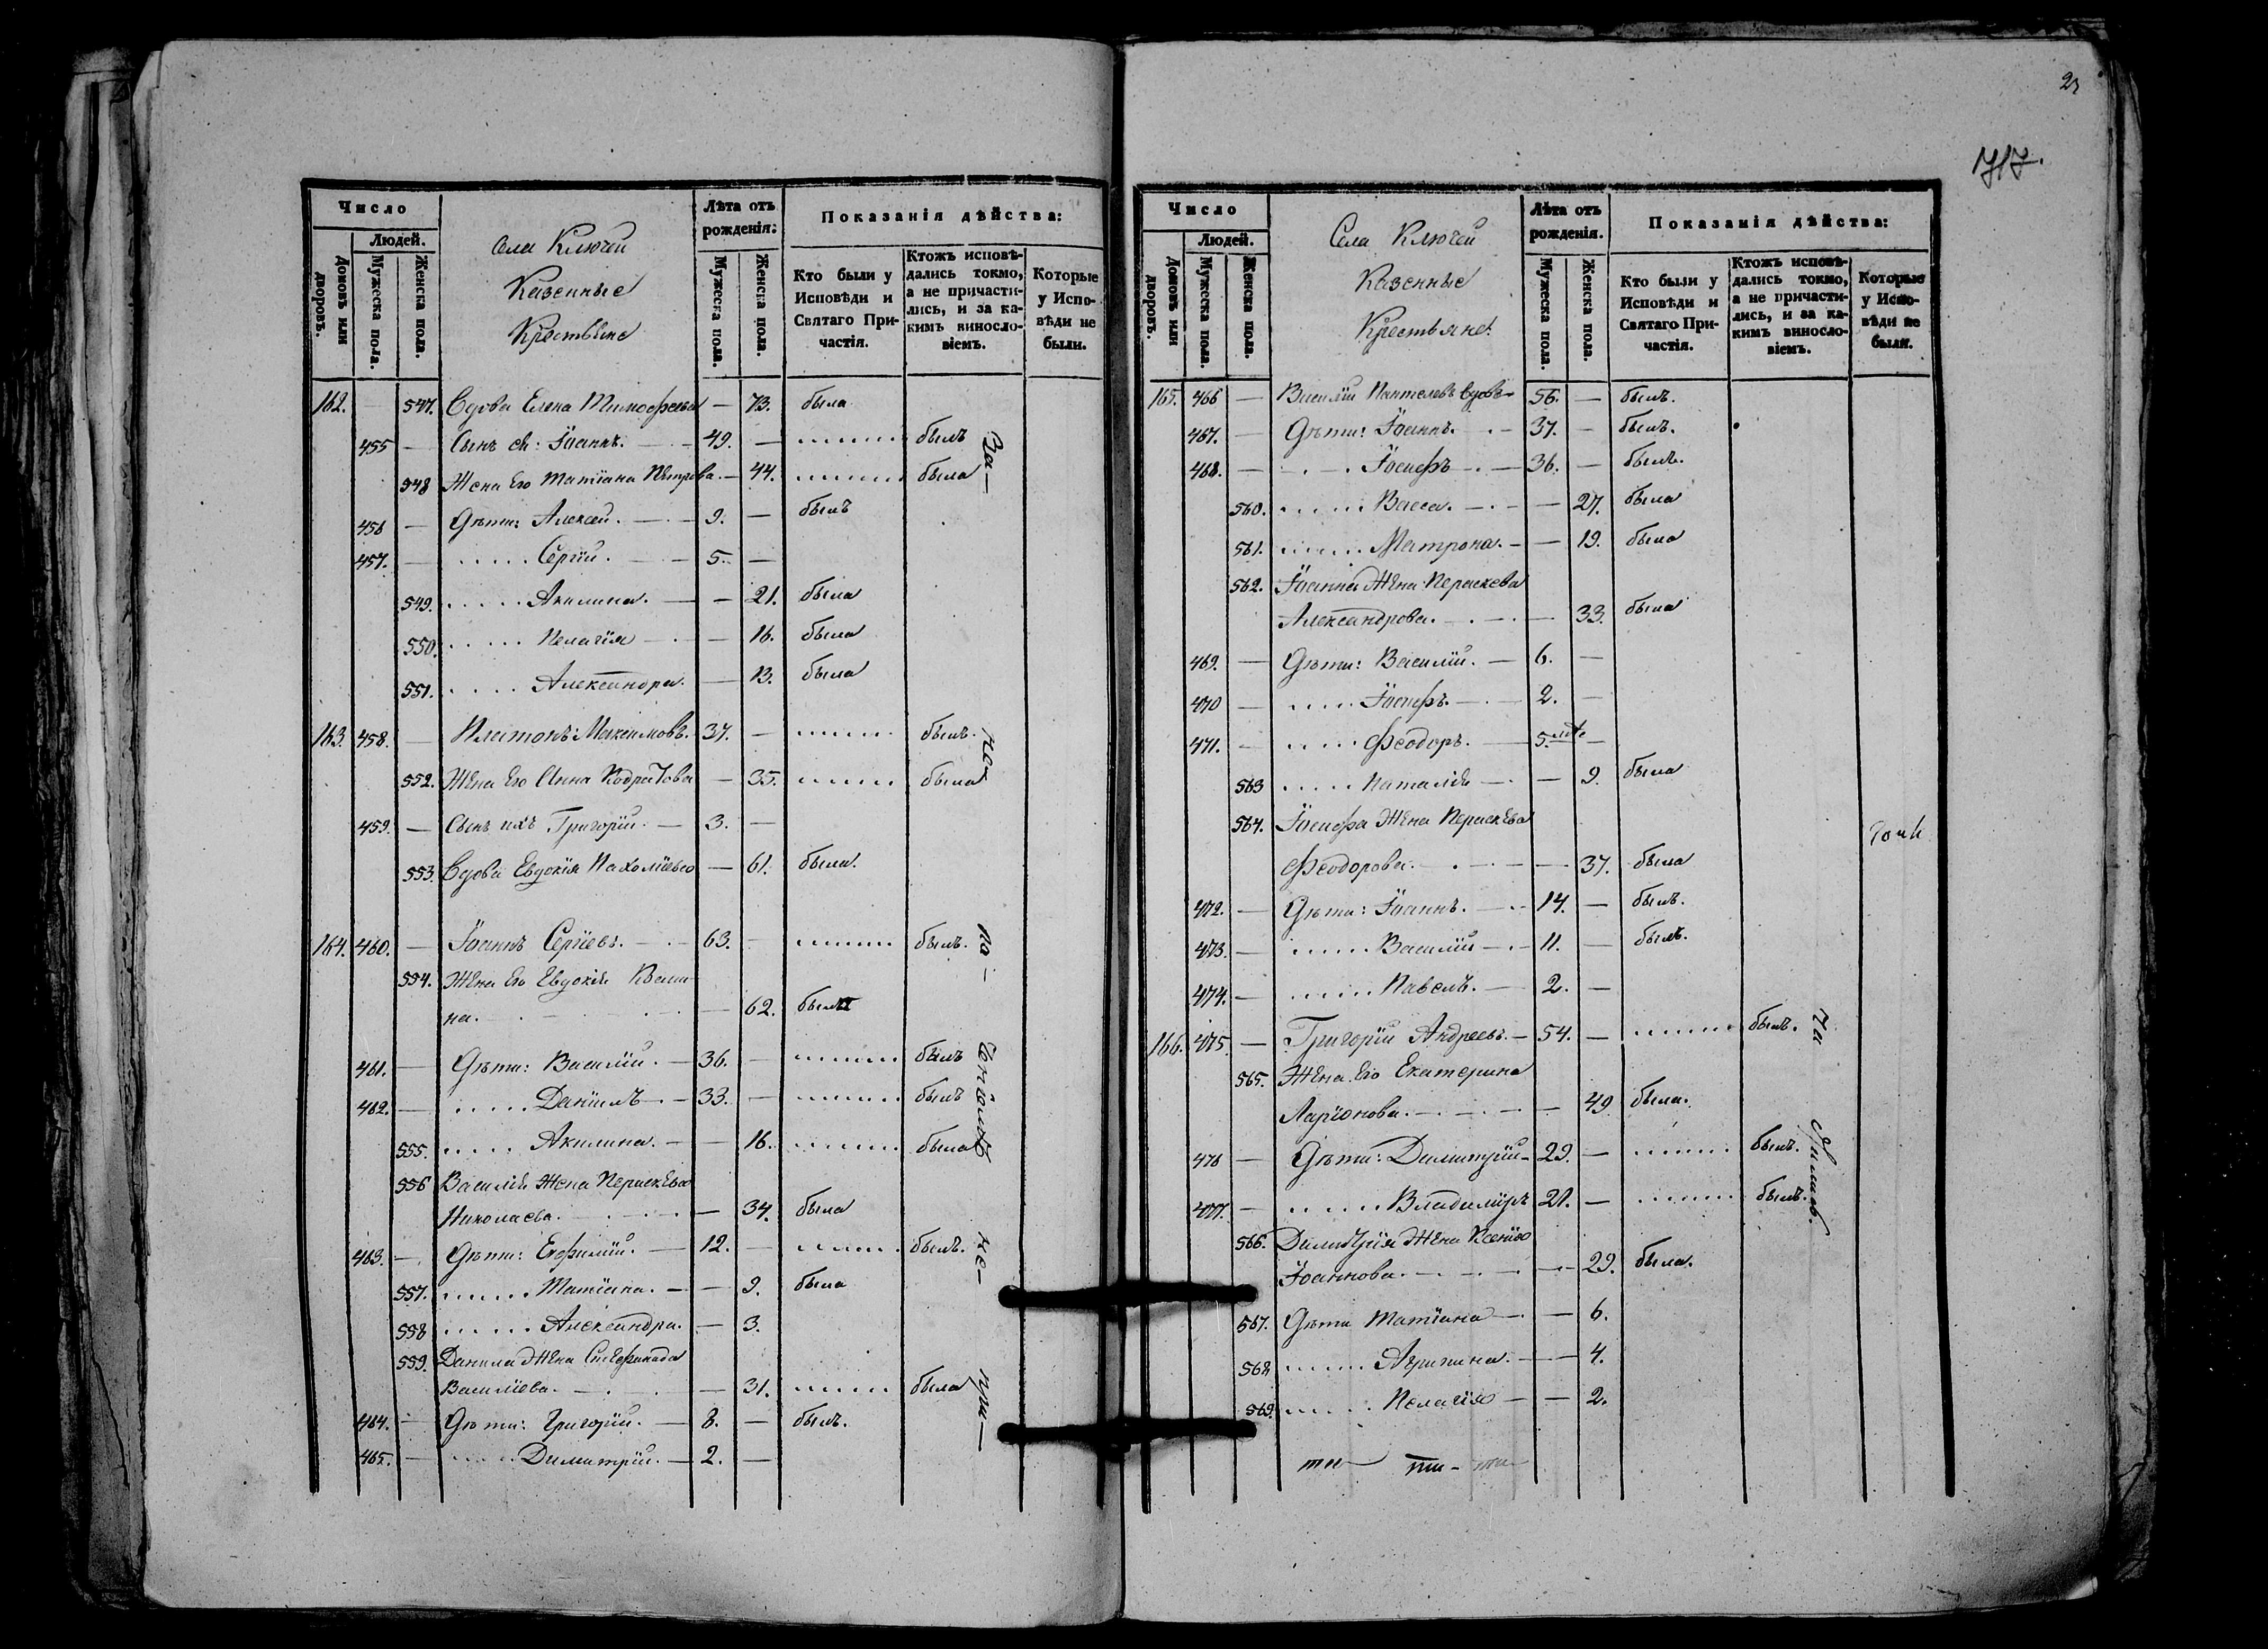 23
717.
Число
Людей.
Домовъ или дворовъ.
Мужеска пола.
Женска пола.
Села Ключей
Казенные
Крестьяне
Лѣта отъ рожденія:
Мужеска пола.
Женска пола.
Показанія дѣйства:
Кто были у Исповѣди и Святаго Причастія.
Ктожъ исповѣдались токмо, а не причастились, и за какимъ винословіемъ.
Которые у Исповѣди не были.
162. — 547. Вдова Елена Тимофеева — 73. была
455 — Сынъ ея: Іоаннъ. — 49. — был
548 Жена его Татіана Петрова. — 44. была
456 — Дѣти: Алексей. — 9. — былъ
457. — Сергій. — 5. —
549. Акилина. — 21. была
550. Пелагія — 16. была
551. Александра. — 13. была
163. 458. — Платонъ Максимовъ. 37. — былъ.
552. Жена его Анна Кодратова — 35. была
459. — Сынъ ихъ Григорій — 3. —
553. Вдова Евдокія Пахоміева — 61. была.
164. 460. — Іоаннъ Сергіевъ. — 63. — былъ.
554. Жена его Евдокія
на. — 62. была
461. — Дѣти: Василій. — 36. — былъ
462. — Даніилъ — 33. — былъ
555. Акилина. — 16. была
556 Василія Жена Параскева
Николаева. — 34. была
463. — Дѣти: Ефимій. — 12. — былъ.
557. Татіана. — 9. была
558 Александра. — 3.
559. Данила Жена Стефанида
Василіева. — 31. была
464. — Дѣти: Григорій. — 8. — былъ.
465. — Димитрій. — 2. —
За—
не—
при—
Число
Людей.
Домовъ или дворовъ.
Мужеска пола.
Женска пола.
Села Ключей
Казенные
Крестьяне.
Лѣта отъ рожденія.
Мужеска пола.
Женска пола.
Показанія дѣйства:
Кто были у Исповѣди и Святаго Причастія.
Ктожъ исповѣдались токмо, а не причастились, и за какимъ винословіемъ.
Которые у Исповѣди не были.
165. 466 — Василій Пантелевъ вдовъ — 56. — былъ.
467. — Дѣти: Іоаннъ. — 37. — былъ.
468. — Іосифъ — 36. — былъ.
560. Васса. — 27. была
561. Матрона. — 19. была
562. Іоанна Жена Параскева
Александрова. — 33. была
469. — Дѣти: Василій. — 6. —
470 — Іосифъ. — 2. —
471. — Феодоръ. — 5. —
563 Наталія — 9. была
564. Іосифа Жена Параскева
Феодорова. — 37. была
472. — Дѣти: Іоаннъ. — 14. — былъ.
473. — Василій — 11. — былъ.
474. — Павелъ. — 2. —
166. 475 — Григорій Андреевъ. — 54. — былъ.
565. Жена его Екатерина
Ларіонова. — 49 была.
476 — Дѣти: Димитрій — 29. — былъ.
477. — Владиміръ 21. — былъ.
566. Димитрія Жена Ксенія
Іоаннова. — 29. была.
567. Дѣти Татіана — 6.
568 Агрипина. — 4.
569. Пелагія — 2.